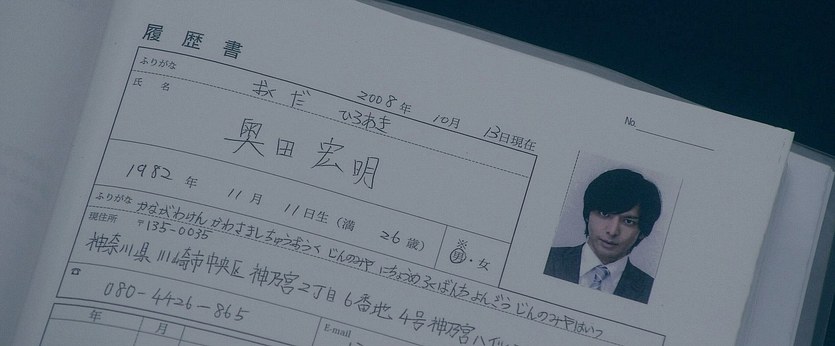 履歴書
2008年 10月 13日現在
No.
ふりがな おくだ ひろあき
氏名 奥田 宏明
1982年 11月 11日生 (満 26歳) ※ 男・女
ふりがな かながわけん かわさきしちゅうおうく じんのみや にちょうめ ろくばんち よんごう じんのみやはいつ
現住所 〒135-0035
神奈川県 川崎市中央区 神乃宮2丁目6番地 4号 神乃宮ハイツ
☎ 080-4426-865
年 月
E-mail